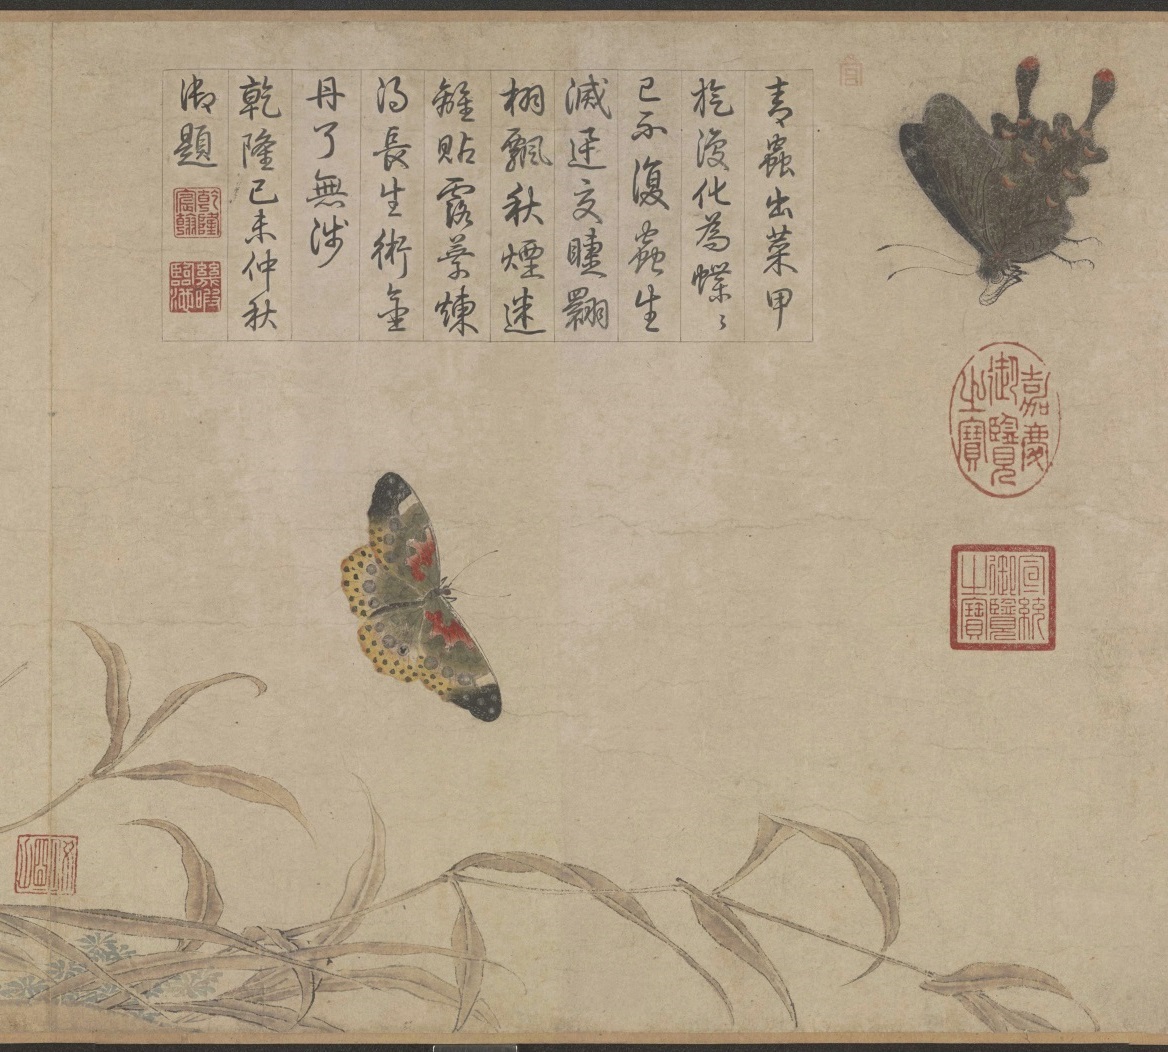 嘉慶御覽之寶
宣統御覽之寶
青蟲出菜甲
旋復化為蝶〻
已不復蟲生
滅交睫翾
栩飄秋煙迷
離貼露葉煉
得長生術金
丹了無涉
乾隆己未仲秋
御題
乾隆宸翰
幾暇臨池